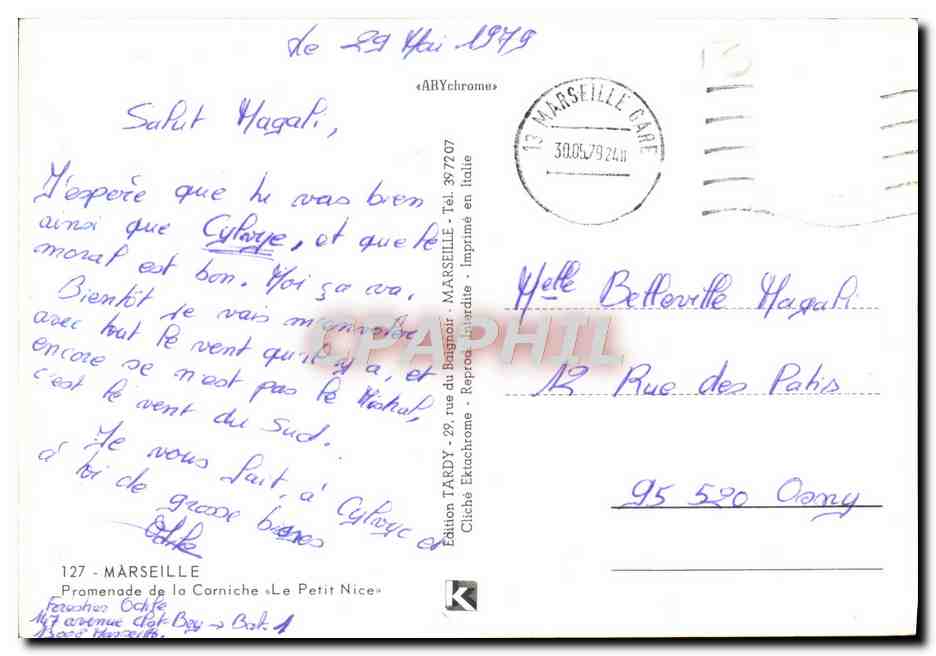 Le 29 Mai 1979
«ARYchrome»
Salut Magali,
J'espère que tu vas bien
ainsi que Cylvye, et que le
moral est bon. Moi ça va.
Bientôt je vais m'envoler
avec tout le vent qu'il y a, et
encore se n'est pas le Mistral,
c'est le vent du Sud.
Je vous fait, à Cylvye et
à toi de grosse bises
127 - MARSEILLE
Promenade de la Corniche «Le Petit Nice»
147 avenue
Bat. 1
Edition TARDY - 29, rue du Baignoir - MARSEILLE - Tél. 39 72 07
Cliché Ektachrome - Reprod. Interdite - Imprimé en Italie
K
13 MARSEILLE GARE
30.05.79 24H
CPAPHIL
Melle Belleville Magali
12 Rue des Patis
95 520 Osny